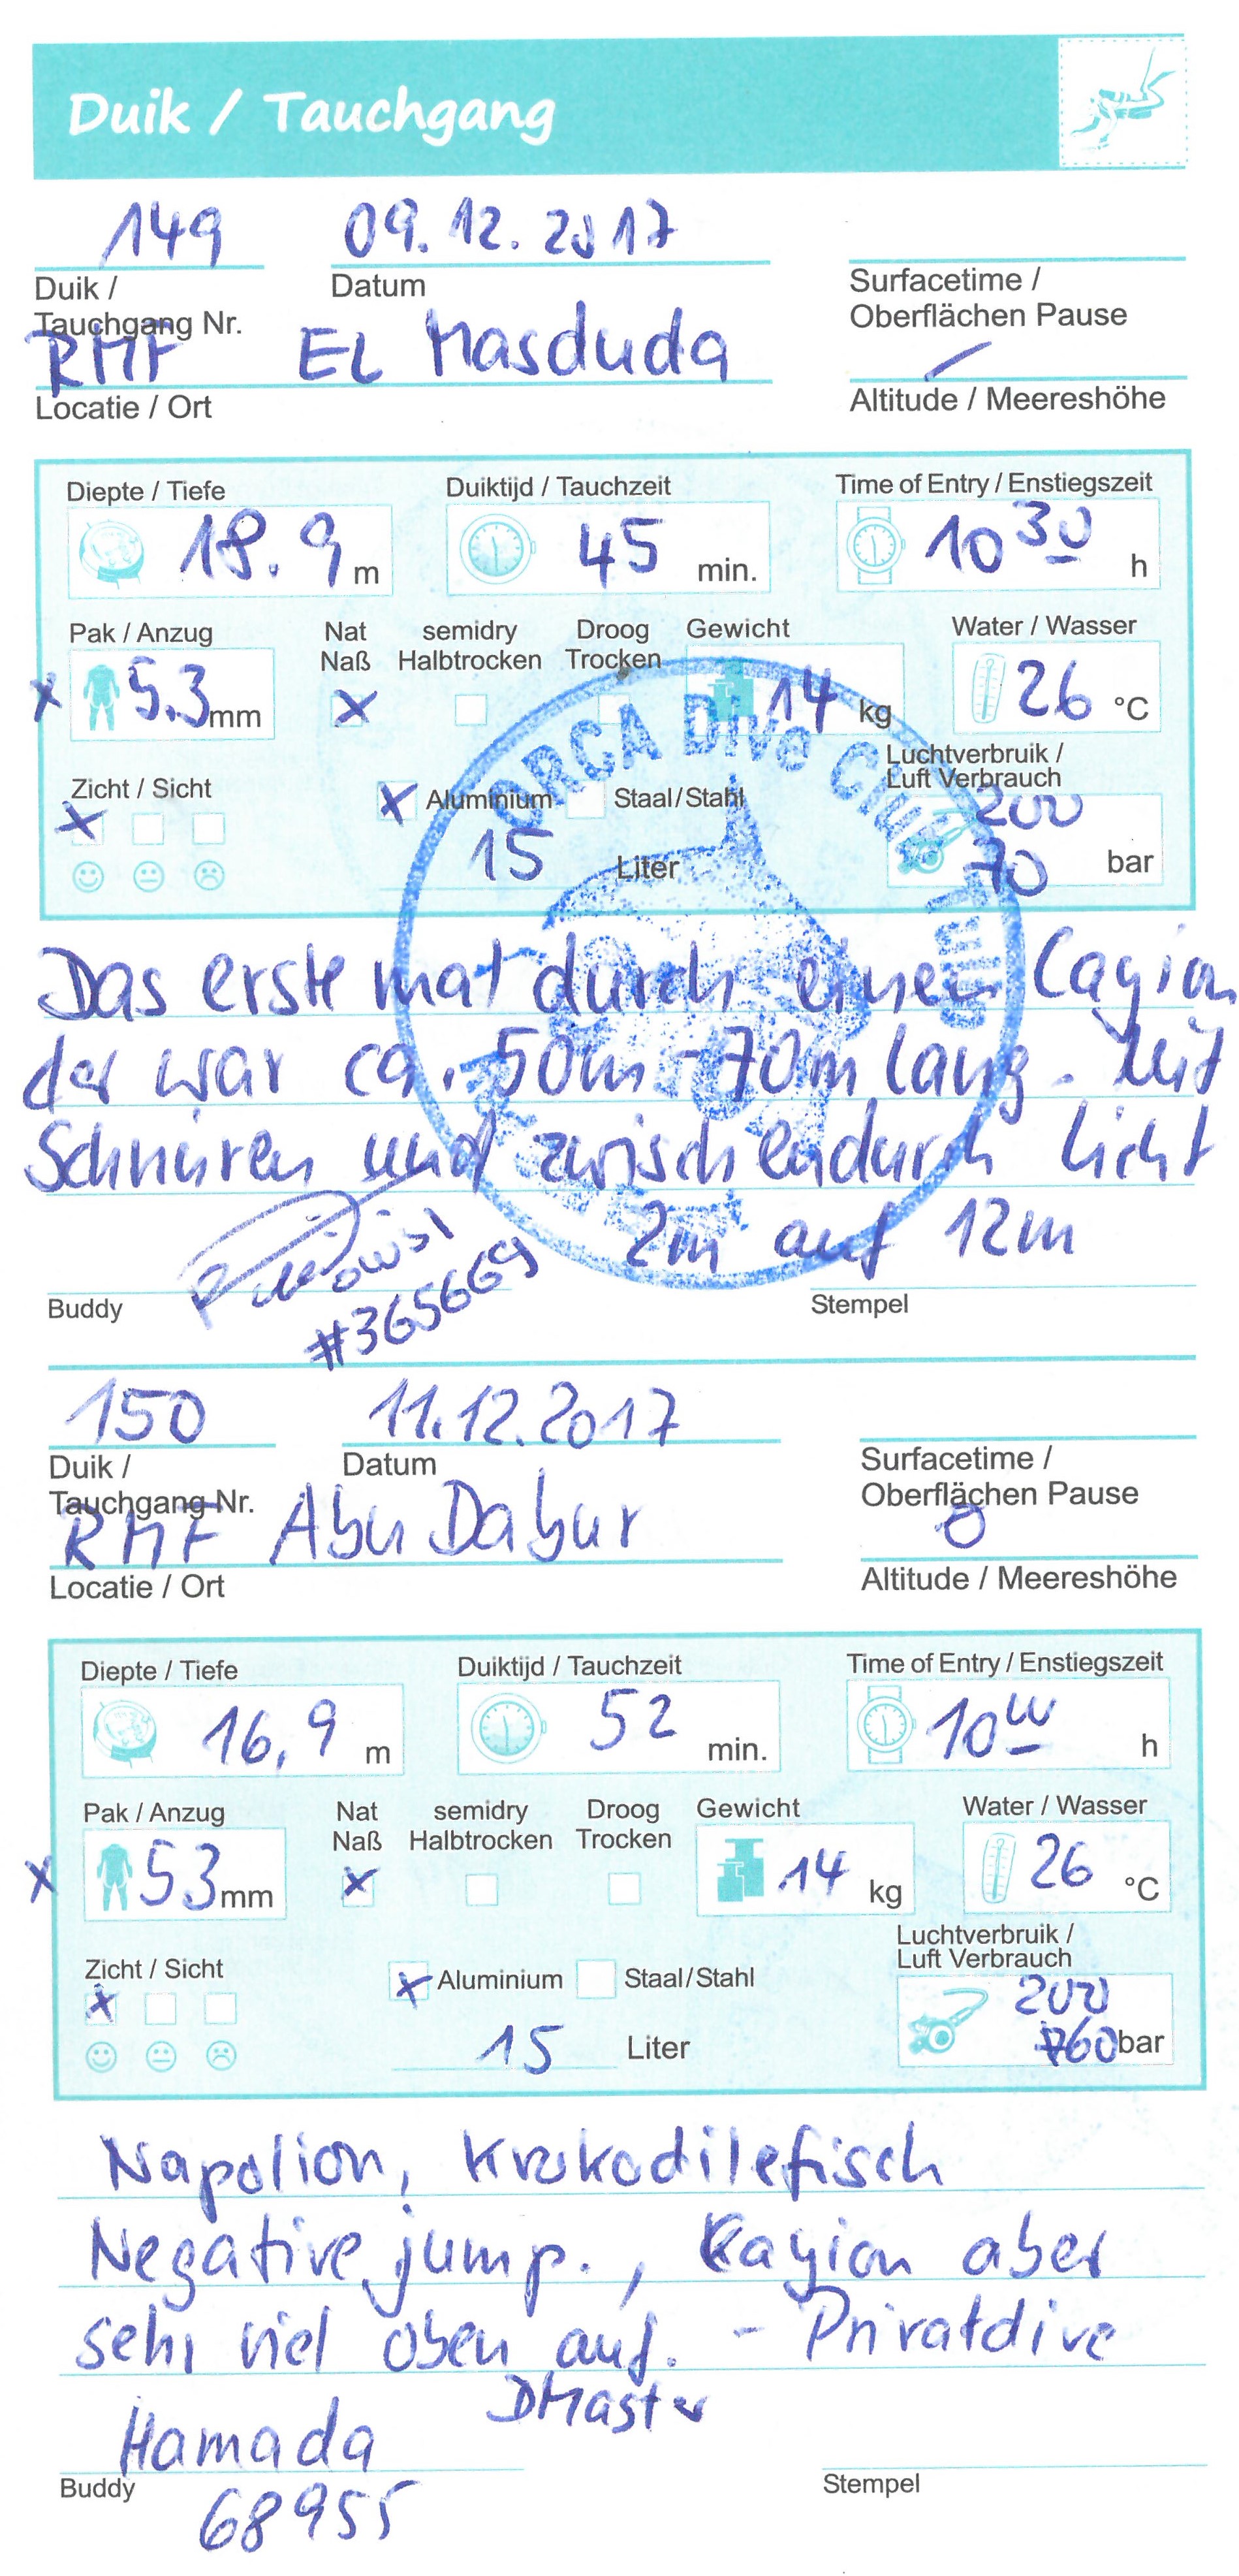 Duik / Tauchgang
149 09.12.2017
Duik / Tauchgang Nr. Datum Surfacetime / Oberflächen Pause
RMF EL Masduda
Locatie / Ort Altitude / Meereshöhe
Diepte / Tiefe Duiktijd / Tauchzeit Time of Entry / Enstiegszeit
18.9 m 45 min. 10 30 h
Pak / Anzug Nat Naß semidry Halbtrocken Droog Trocken Gewicht Water / Wasser
x 5.3 mm x 14 kg 26 °C
Zicht / Sicht x Aluminium Staal/Stahl Luchtverbruik / Luft Verbrauch
x 15 Liter 200 70 bar
ORCA Dive Club
Das erste mal durch einen Cayion
der war ca. 50m - 70m lang. Mit
Schnüren und zwischendurch licht
2m auf 12m
#365669
Buddy Stempel
150 11.12.2017
Duik / Tauchgang Nr. Datum Surfacetime / Oberflächen Pause
RMF Abu Dabur 0
Locatie / Ort Altitude / Meereshöhe
Diepte / Tiefe Duiktijd / Tauchzeit Time of Entry / Enstiegszeit
16,9 m 52 min. 10 00 h
Pak / Anzug Nat Naß semidry Halbtrocken Droog Trocken Gewicht Water / Wasser
x 53 mm x 14 kg 26 °C
Zicht / Sicht x Aluminium Staal/Stahl Luchtverbruik / Luft Verbrauch
x 15 Liter 200 60 bar
Napolion, Krokodilefisch
Negative jump., Kayion aber
sehr viel oben auf. - Privatdive
DMaster
Hamada
Buddy Stempel
68955